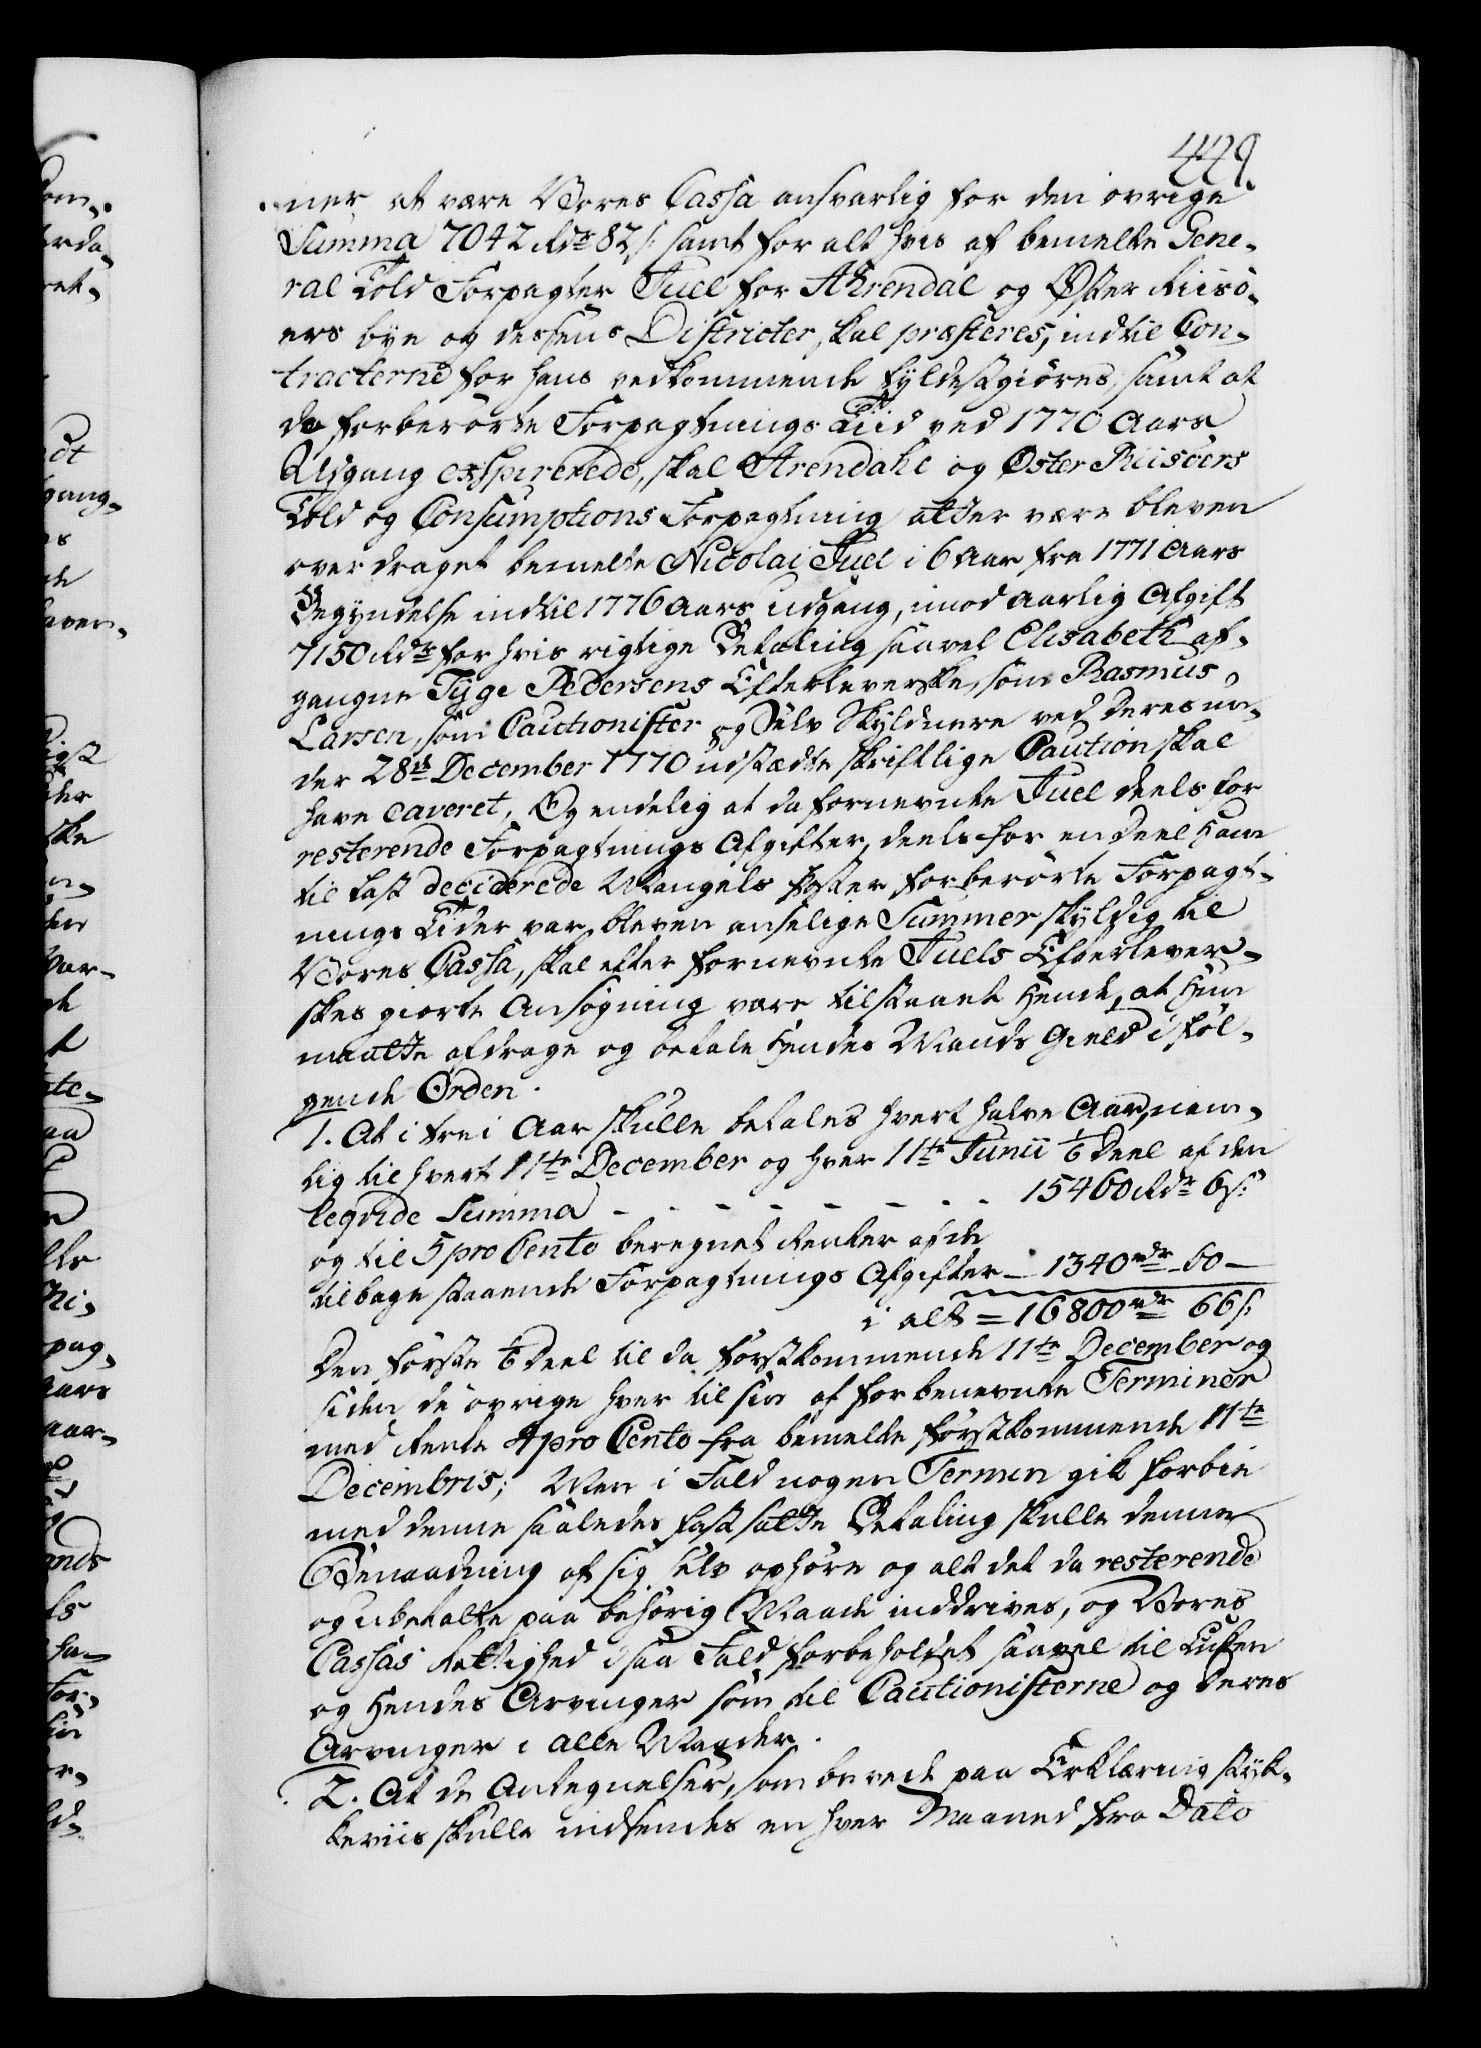 449
ner at være Vores Cassa ansvarlig for den øvrige
Summa 7042 Rdr 82 s: samt for alt hvis af bemelte Gene-
ral Told Forpagter Juel for Ahrendal og Øster Riisö-
ers bye og dessens Districter, skal præsteres, indtil Con-
tracterne for hans vedkommende fyldestgiöres, samt at
da forberörte Forpagtnings Tiid ved 1770 Aars
Udgang exspirerede, skal Arendahl og Öster Riisöers
Told og Consumptions Forpagtning atter være bleven
overdraget bemelte Nicolai Juel i 6 Aar fra 1771 Aars
Begyndelse indtil 1776 Aars udgang, imod aarlig Afgift
7150 Rdr for hvis rigtige Betaling saavel Elisabeth af-
gangne Tÿge Pedersens Efterleverske, som Rasmus
Larsen, som Cautionister og Selv Skyldnere ved deres un-
der 28de December 1770 udstædte skriftlige Caution skal
have caveret, Og endelig at da fornevnte Juel deels for
resterende Forpagtnings Afgifter, deels for en deel ham
til last deciderede Mangels Poster forberörte Forpagt-
nings Tider var bleven anselige Summer skyldig til
Vores Cassa, skal efter fornevnte Juels Efterlever-
skes giorte Ansögning være tilstaaet hende, at hun
maatte afdrage og betale hendes Mands Gield i föl-
gende Orden.
1. At i trei Aar skulle betales hvert halve Aar, nem-
lig til hvert 11te December og hver 11te Junii 1/6 Deel af den
leqvide Summa - - - - - - - - 15460 Rdr 6 s:
og til 5 pro Cento beregnet Renter af de
tilbage staaende Forpagtnings Afgifter - 1340 rdr 60 -
i alt = 16800 rdr 66 s:
Den förste 1/6 Deel til da förstkommende 11te December og
siden de övrige hver til sin af forbenevnte Terminer
med Rente 4 pro Cento fra bemelte förstkommende 11te
Decembris; Men i Fald nogen Termin gik forbie
med denne saaledes fastsatte Betaling skulle denne
Benaadning af sig selv ophöre og alt det da resterende
og ubetalte paa behörig Maade inddrives, og Vores
Cassas Rettighed i saa Fald forbeholdet saavel til Enken
og hendes Arvinger som til Cautionisterne og deres
Arvinger i alle Maader.
2. At de Antegnelser, som beroede paa Erklæring styk-
keviis skulle indsendes en hver Maaned fra Dato